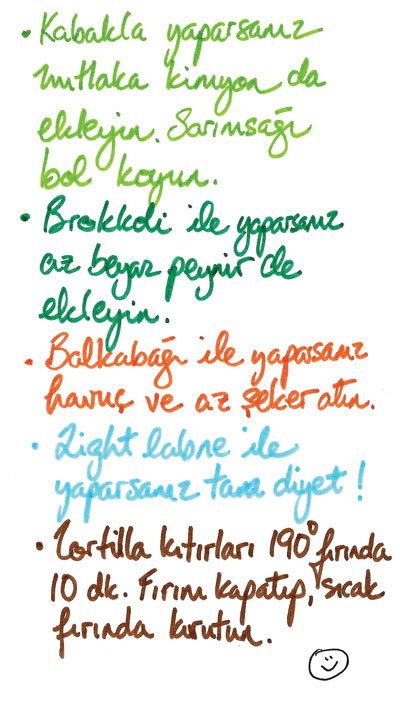 • Kabakla yaparsanız
mutlaka kimyon da
ekleyin. Sarımsağı
bol koyun.
• Brokkoli ile yaparsanız
az beyaz peynir de
ekleyin.
• Balkabağı ile yaparsanız
havuç ve az şeker atın.
• Light labne ile
yaparsanız tam diyet!
• Tortilla kıtırları 190° fırında
10 dk. Fırını kapatıp, sıcak
fırında kurutun.